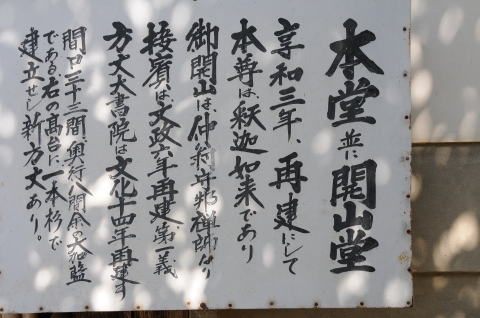 本堂並に開山堂
享和三年、再建にして
本尊は、釈迦如来であり
御開山は、仲翁守邦禅師なり
接賓は文政六年再建、第一義
方丈大書院は文化十四年再建す
間口二十三間、奥行八間余の大伽藍
である右の高台に一本杉で
建立せし新方丈あり。